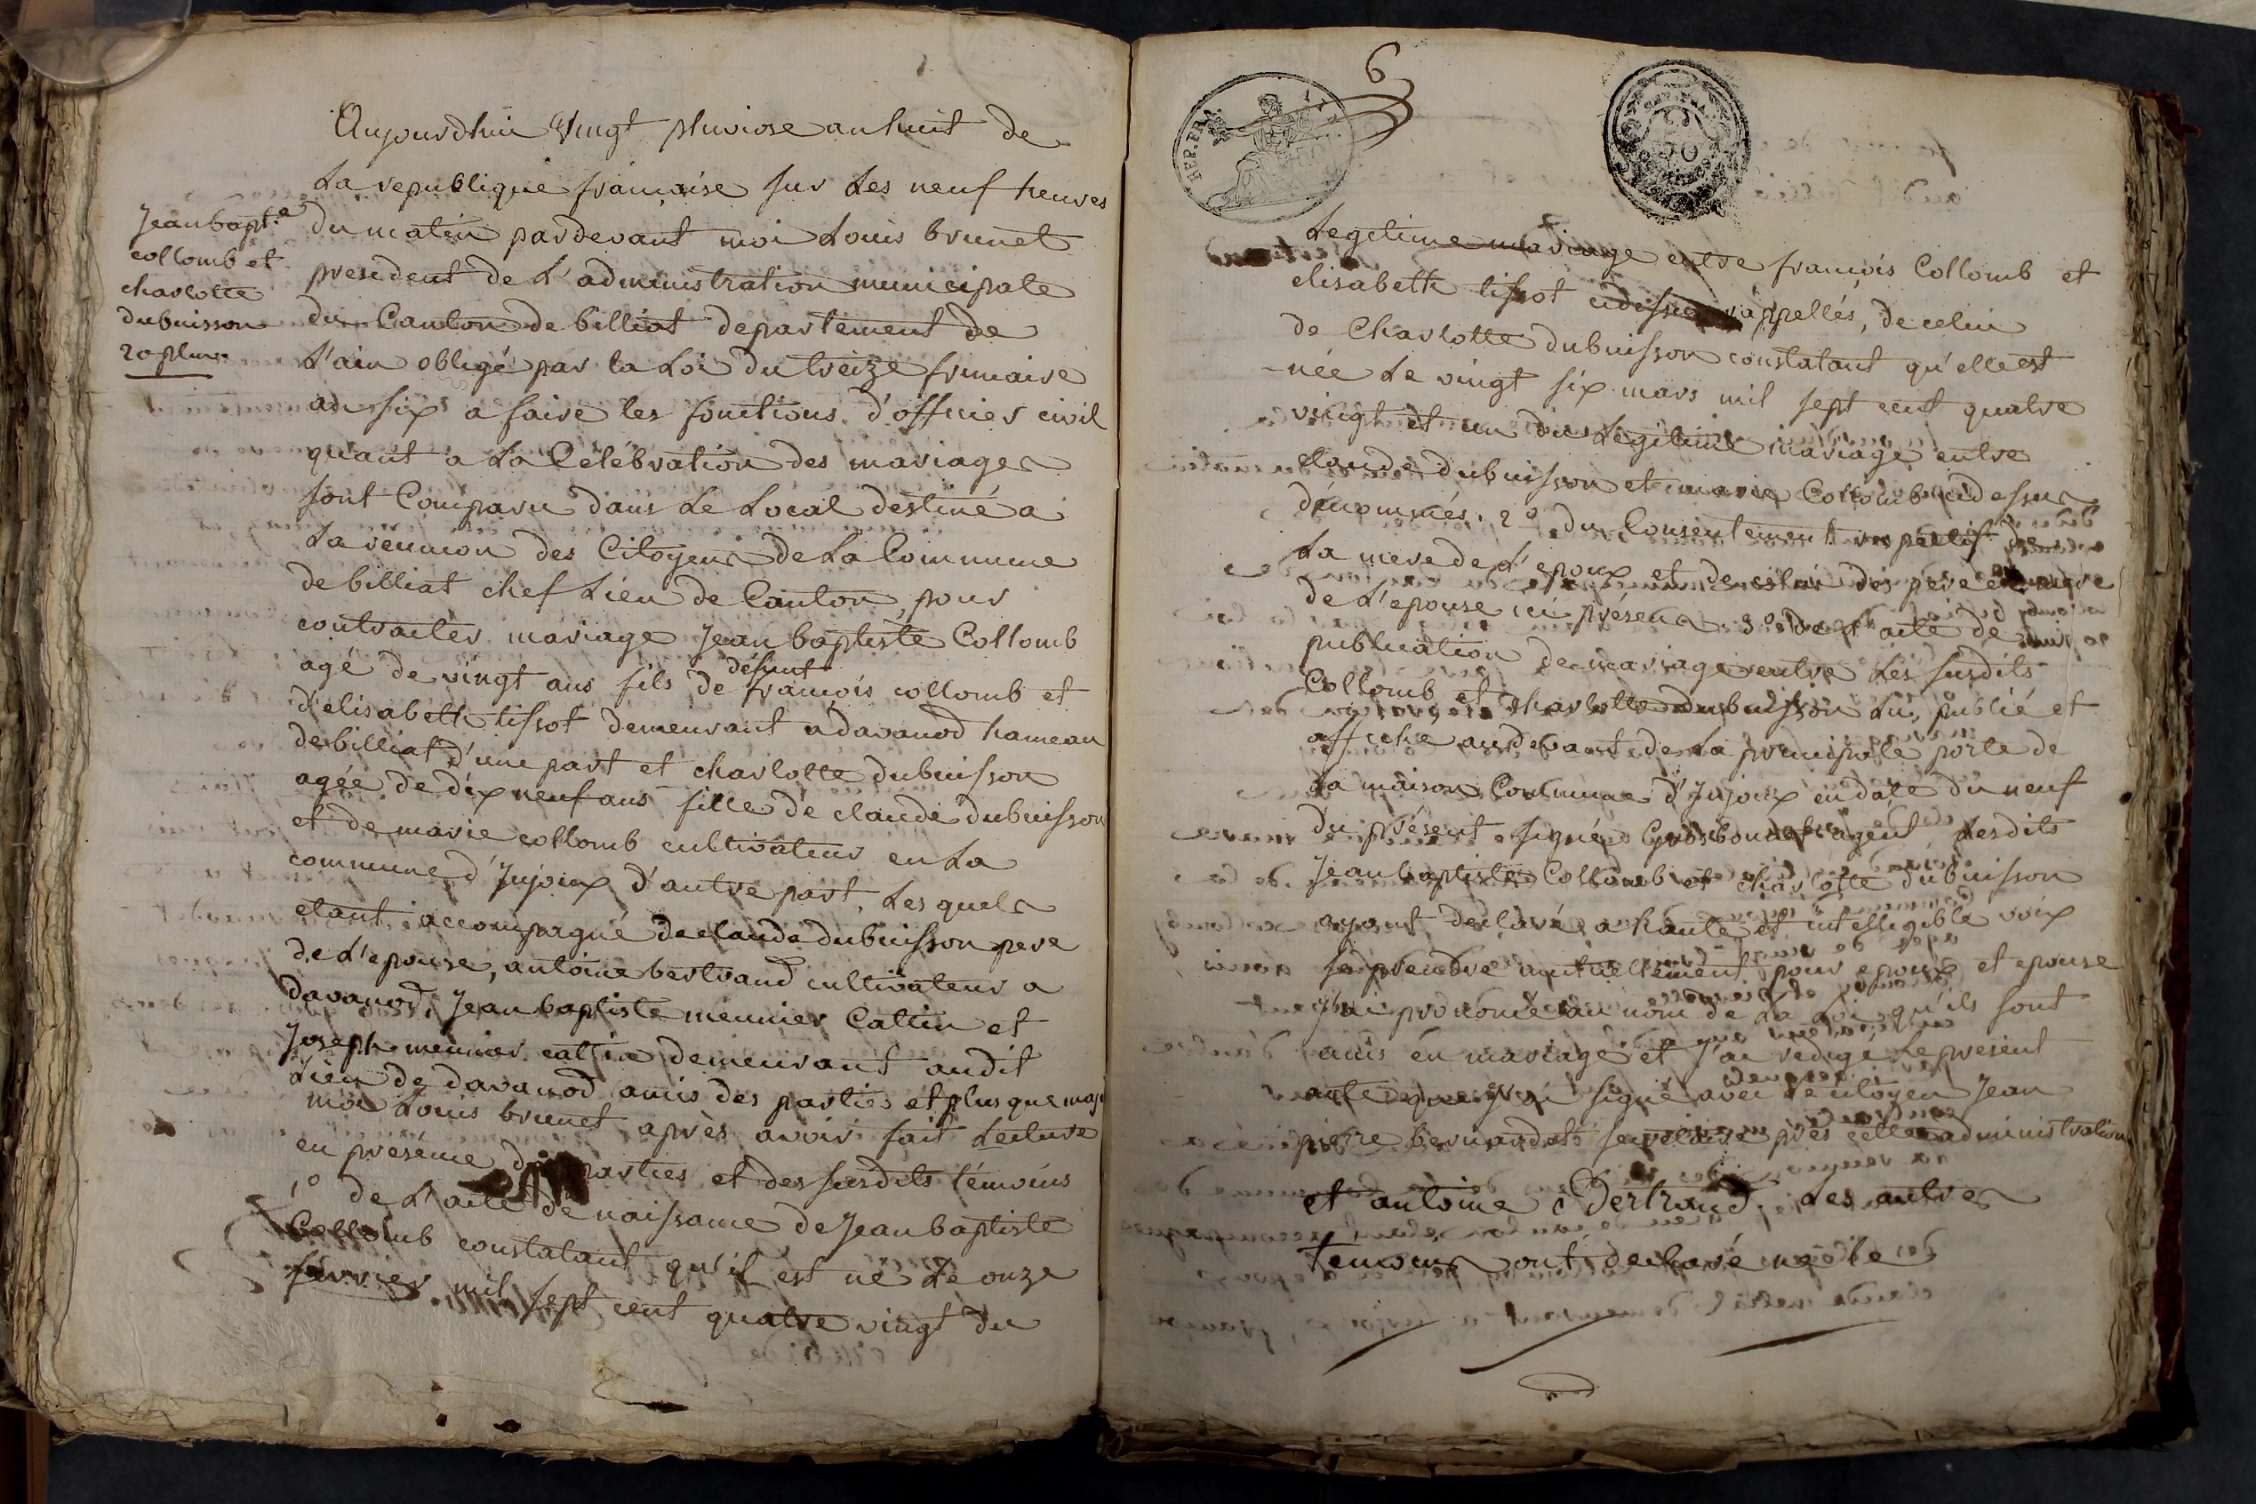 Aujourdhui vingt pluviose an huit de
La republique française sur les neuf heures
du matin pardevant moi Louis brunet
president de L'administration municipale
du Canton de billiat departement de
L'ain obligé par la Loi du treize frimaire
an six a faire les fonctions d'officier civil
quant a La Celébration des mariages
sont Comparu dans Le Local destiné a
La reunion des Citoyens de La Commune
de billiat chef Lieu de Canton, pour
contracter mariage Jean baptiste Collomb
agé de vingt ans fils de défunt françois collomb et
d'elisabeth tissot demeurant a davanod hameau
de billiat d'une part et charlotte dubuisson
agée de dix neuf ans fille de claude dubuisson
et de marie collomb cultivateur en La
commune d'Jnjoux d'autre part, Les quels
etant accompagné de claude dubuisson pere
de L'epouse, antoine bertrand cultivateur a
davanod, Jean baptiste meunier Cattin et
Joseph meunier cattin demeurant audit
Lieu de davanod amis des parties et plus que maj
moi Louis brunet après avoir fait Lecture
en présence des parties et des susdits témoins
1° de L'acte de naissance de Jean baptiste
Collomb constatant qu'il est né Le onze
fevrier mil sept cent quatre vingt du
Jean bapte
collomb et
charlotte
dubuisson
20 pluv
6
REP. FRA.
Legitime mariage entre françois Collomb et
elisabeth tissot cidessus rappellés, de celui
de Charlotte dubuisson constatant qu'elle est
née Le vingt six mars mil sept cent quatre
vingt et un du Légitime mariage entre
claude dubuisson et marie Collomb cidessus
dénommés. 2° du Consentement respectif
La mere de L'epoux et de celui des pere et mere
de L'epouse ici présens 3° de L'acte de
publication de mariage entre Les susdits
Collomb et Charlotte dubuisson Lu, publié et
affiche au devant de La principale porte de
La maison Commune d'Jnjoux en date du neuf
du présent signée Grosbonnet agent Lesdits
Jean baptiste Collomb et charlotte dubuisson
ayant declaré a haute et intelligible voix
se prendre mutuellement pour epoux et epouse
J'ai prononcé au nom de La Loi qu'ils sont
unis en mariage et J'ai redigé Le present
acte que J'ai signé avec Le citoyen Jean
pierre bernardat secretaire près cette administration
et antoine Bertrand. Les autres
temoins ont declaré ne Le